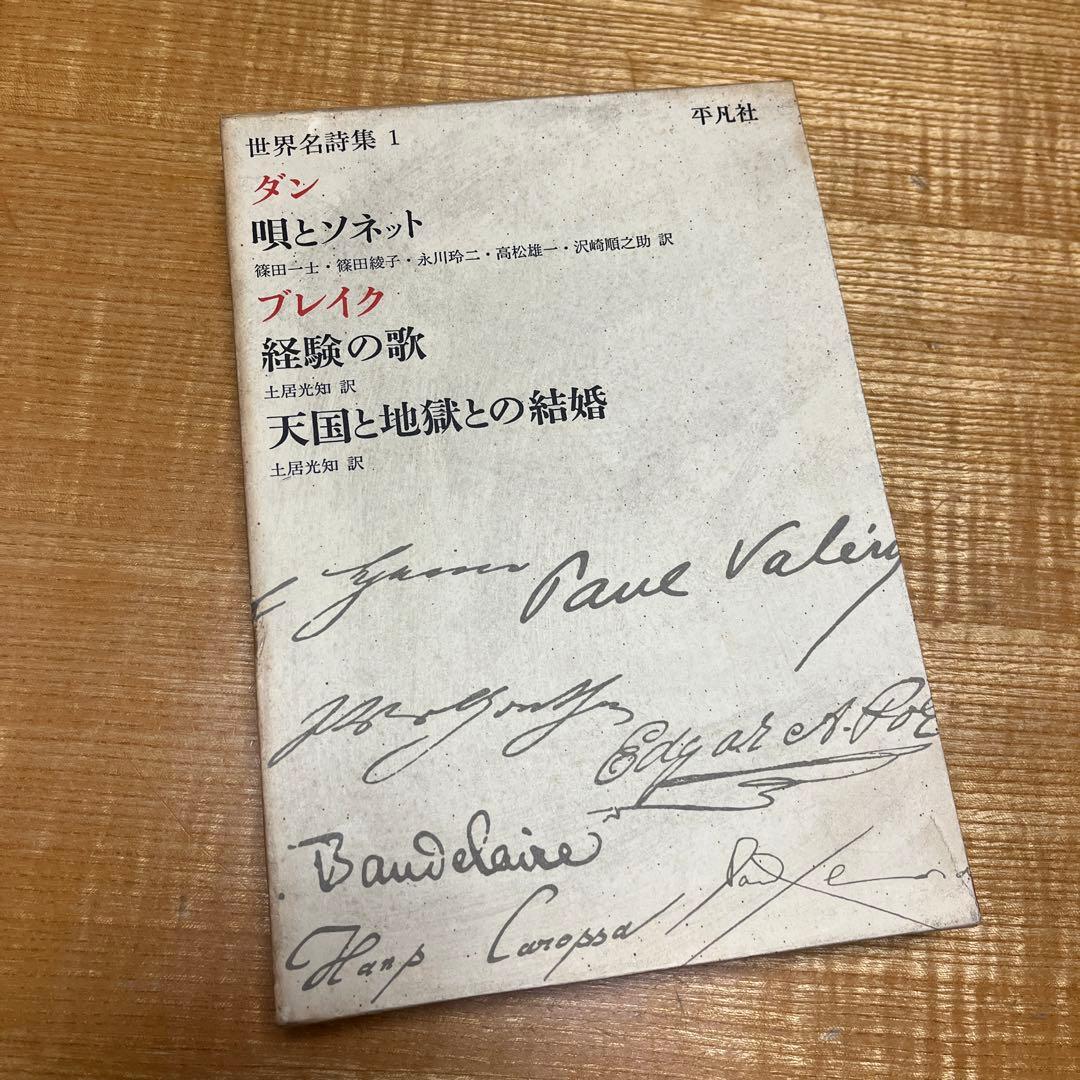 世界名詩集 1
平凡社
ダン
唄とソネット
篠田一士・篠田綾子・永川玲二・高松雄一・沢崎順之助 訳
ブレイク
経験の歌
土居光知 訳
天国と地獄との結婚
土居光知 訳
Paul Valéry
Edgar A. Poe
Baudelaire
Hans Carossa